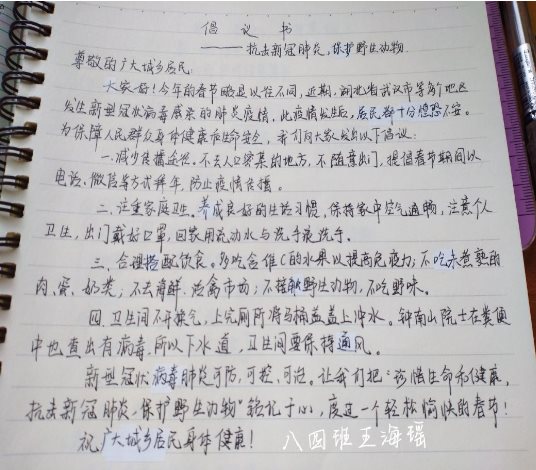 倡议书
——抗击新冠肺炎,保护野生动物
尊敬的广大城乡居民:
大家好!今年的春节略显以往不同,近期,湖北省武汉市等多个地区
发生新型冠状病毒感染的肺炎疫情,此疫情发生后,居民都十分惶恐不安。
为保障人民群众身体健康和生命安全,我们向大家发出以下倡议:
一.减少食播途径。不去人口密集的地方,不随意出门,提倡春节期间以
电话、微信等方式拜年,防止疫情食播。
二、注重家庭卫生。养成良好的生活习惯,保持家中空气通畅,注意个人
卫生,出门戴好口罩,回家用流动水与洗手液洗手。
三、合理搭配饮食。多吃含维C的水果以提高免疫力;不吃未煮熟的
肉、蛋、奶类,不去海鲜、活禽市场;不接触野生动物,不吃野味。
四.卫生间不开换气,上完厕所将马桶盖盖上冲水。钟南山院士在粪便
中也查出有病毒,所以下水道,卫生间要保持通风。
新型冠状病毒肺炎可防,可控,可治。让我们把“珍惜生命和健康,
抗击新冠肺炎,保护野生动物”铭记于心,度过一个轻松愉快的春节!
祝广大城乡居民身体健康!
八四班王海瑶